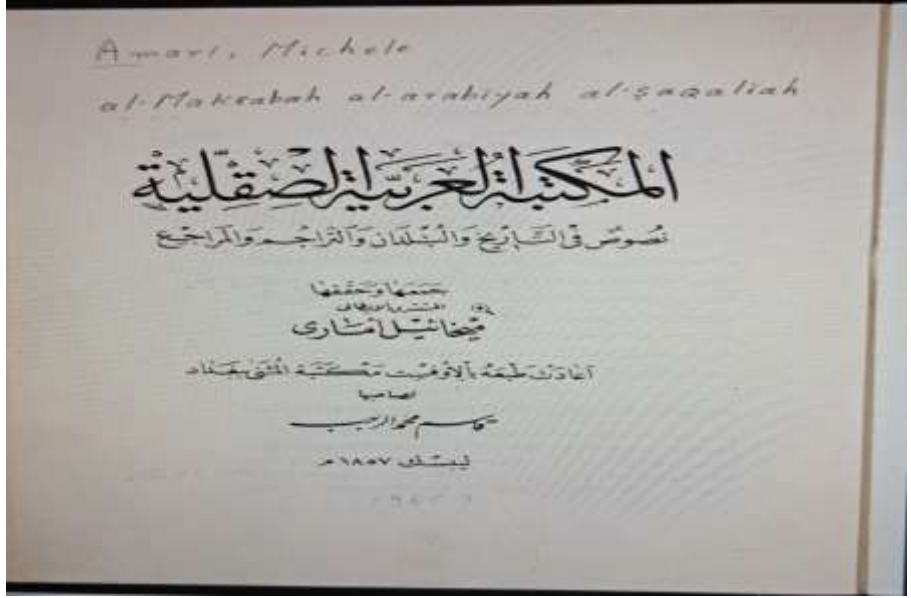 Amari, Michele
al-Maktabah al-arabiyah al-ṣaqaliah
المكتبة العربية الصقلية
نصوص في التاريخ والبلدان والتراجم والمراجع
جمعها وحققها
المستشرق الايطالي
ميخائيل أماري
أعادت طبعه بالاوفست مكتبة المثنى ببغداد
لصاحبها
قاسم محمد الرجب
ليبسك ١٨٥٧ م